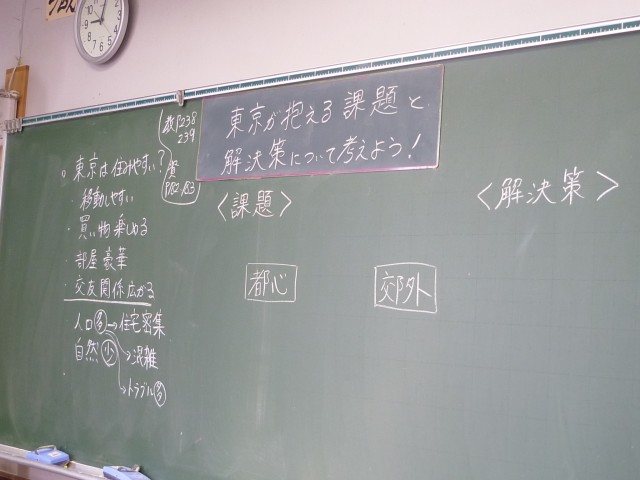 東京が抱える課題と
解決策について考えよう!
教P238
239
資
P182.183
○東京は住みやすい?
移動しやすい
・買い物楽しめる
・部屋豪華
・交友関係広がる
人口多→住宅密集
自然少→混雑
→トラブル多
<課題>
<解決策>
都心
郊外